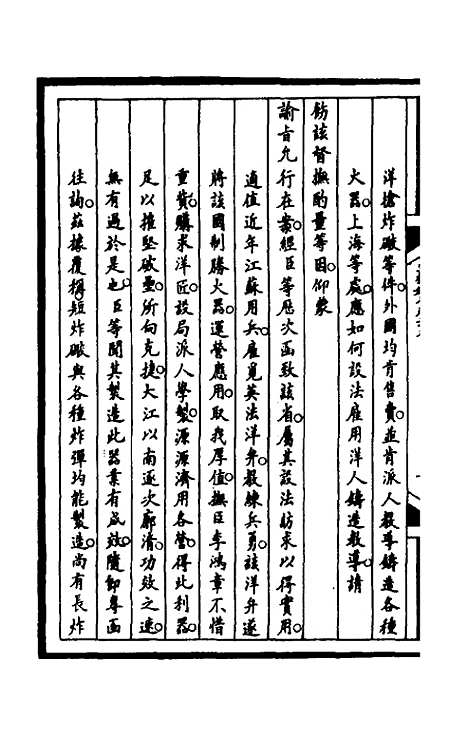 洋槍炸礮等件外國均肯售賣並肯派人教導鑄造各種
火器上海等處應如何設法雇用洋人鑄造教導請
飭該督撫酌量等因仰蒙
諭旨允行在案經臣等歷次函致該省屬其設法訪求以得實用
適值近年江蘇用兵雇覓英法洋弁教練兵勇該洋弁遂
將該國制勝火器運營應用取我厚值撫臣李鴻章不惜
重貲購求洋匠設局派人學製源源濟用各營得此利器
足以摧堅破壘所向克捷大江以南逐次廓清功效之速
無有過於是也臣等聞其製造此器業有成效隨即專函
往詢茲據覆稱短炸礮與各種炸彈均能製造尚有長炸